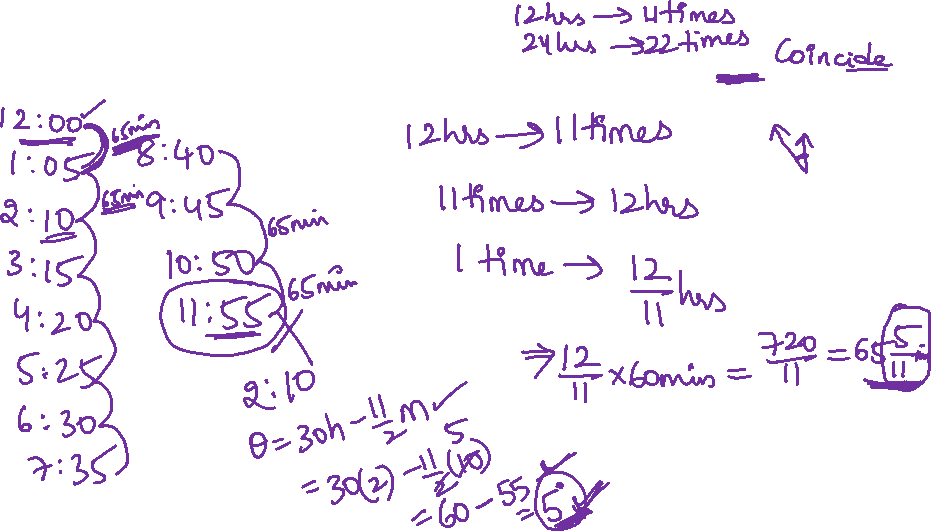 12hrs → 4times
24hrs → 22 times
Coincide
12:00 ✓
1:05
2:10
3:15
4:20
5:25
6:30
7:35
65min
65min
8:40
9:45
10:50
11:55
65min
65min
2:10
θ = 30h - 11/2 m ✓
= 30(2) - 11/2 (10) 5
= 60 - 55 = 5° ✓
12hrs → 11times
11times → 12hrs
1 time → 12/11 hrs
⇒ 12/11 × 60mins = 720/11 = 65 5/11